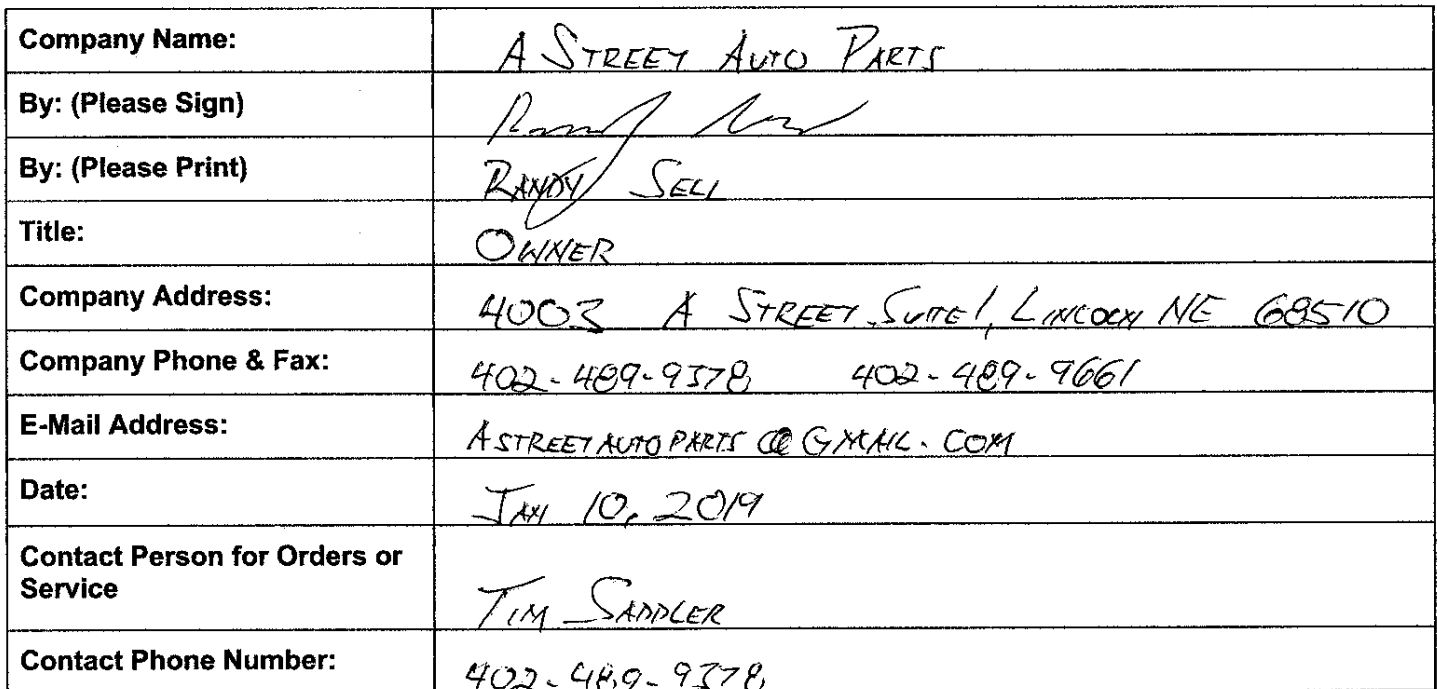 Company Name: A STREET AUTO PARTS
By: (Please Sign)
By: (Please Print) RANDY SELL
Title: OWNER
Company Address: 4003 A STREET, SUITE 1, LINCOLN NE 68510
Company Phone & Fax: 402-489-9378 402-489-9661
E-Mail Address: ASTREETAUTOPARTS@GMAIL.COM
Date: JAN 10, 2019
Contact Person for Orders or
Service TIM SADDLER
Contact Phone Number: 402-489-9378